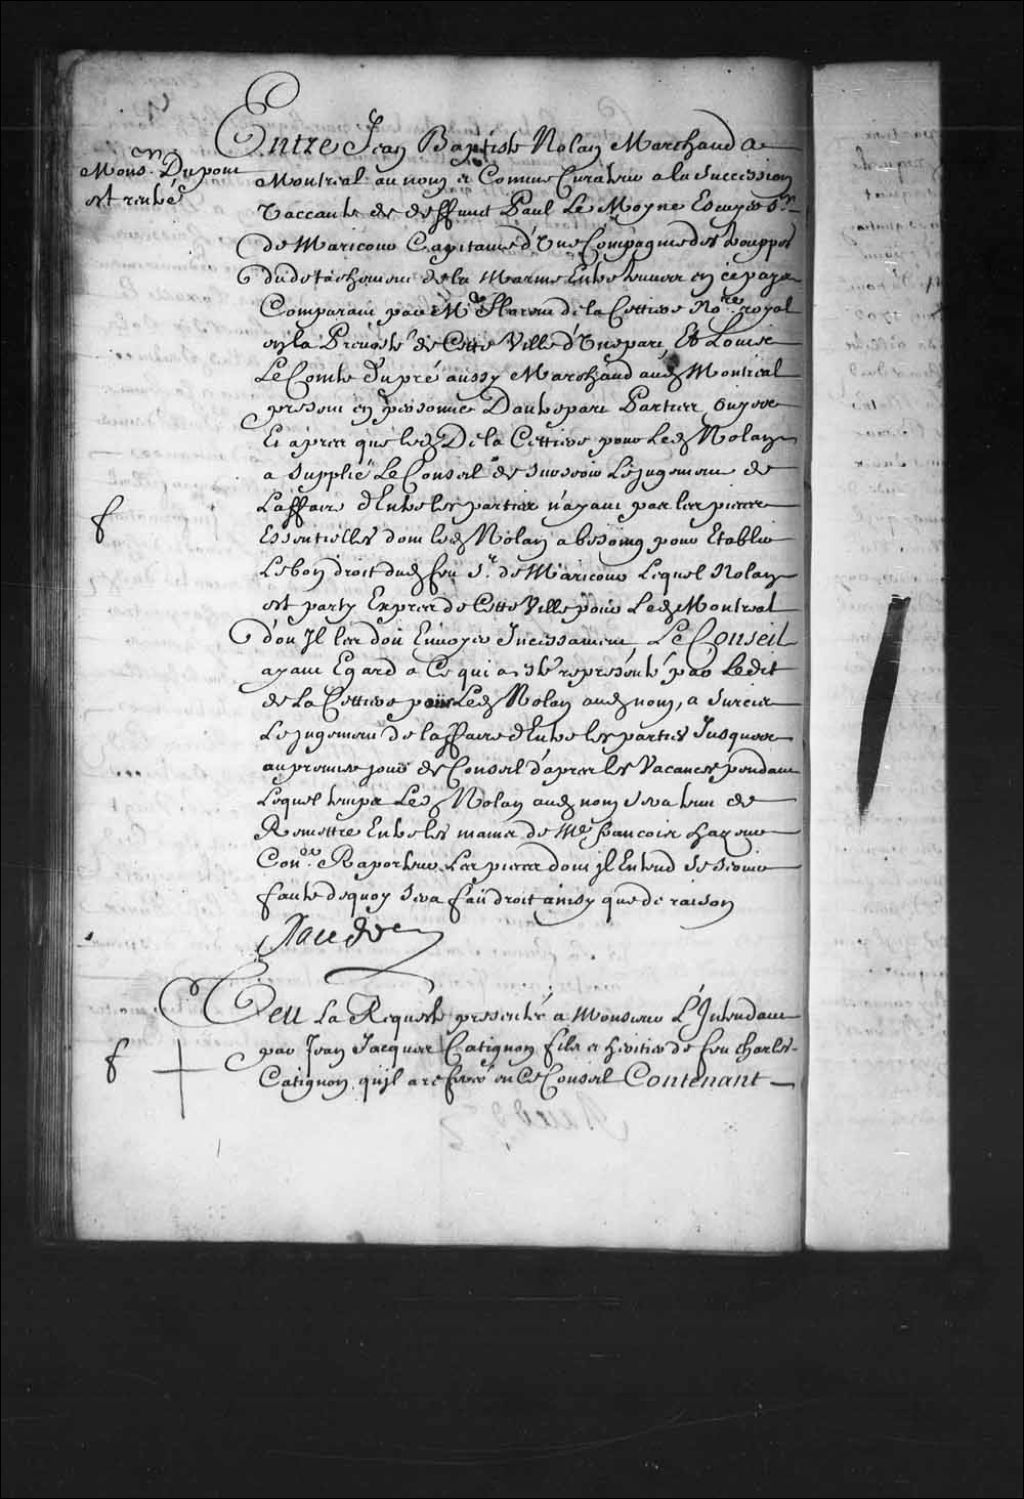 Mons.r Dupont
est rentré
Entre Jean Baptiste Nolan Marchand a
Montreal au nom et Comme Curateur a la Succession
Vaccante de deffunct Paul Le Moyne Escuyer Sr.
de Maricour Capitaine d'Une Compagnie des trouppes
du detachement de la Marine Entretenues en ce pays
Comparant par Me. Florent de la Cettiere Nore. royal
en la Prevosté de Cette Ville d'Une part, Et Louis
Le Comte Dupré aussy Marchand audt Montreal
present en personne D'autre part Parties ouyes
Et aprés que ledt De la Cettiere pour Ledt Nolan
a Supplié Le Conseil de surseoir Le jugement de
L'affaire d'Entre les parties n'ayant pas les pieces
Essentielles dont ledt Nolan a besoing pour Etablir
Le bon droit dudt feu Sr. de Maricour Lequel Nolan
est party Exprés de Cette Ville pour Ledt Montreal
d'ou Il les doit Envoyer Incessament Le Conseil
ayant Egard a Ce qui a esté representé par Ledit
de La Cettiere pour Ledt Nolan audt nom, a Surcis
Le jugement de l'affaire d'Entre les parties Jusques
au premier jour de Conseil d'apres les Vacances pendant
Lequel temps Ledt Nolan audt nom sera tenu de
Remettre Entre les mains de Me francois hazeur
Coner. Raporteur Les pieces dont jl Entend Se Servir
faute dequoy sera fait droit ainsy que de raison
Raudot
Veu La Requeste presentée a Monsieur L'Intendant
par Jean Jacques Catignon fils et heritier de feu charles
Catignon qu'jl a refferé en Ce Conseil Contenant